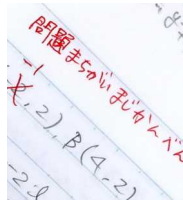 問題まちがいまじかんべん
-1
, 2), B(4, 2)
-2